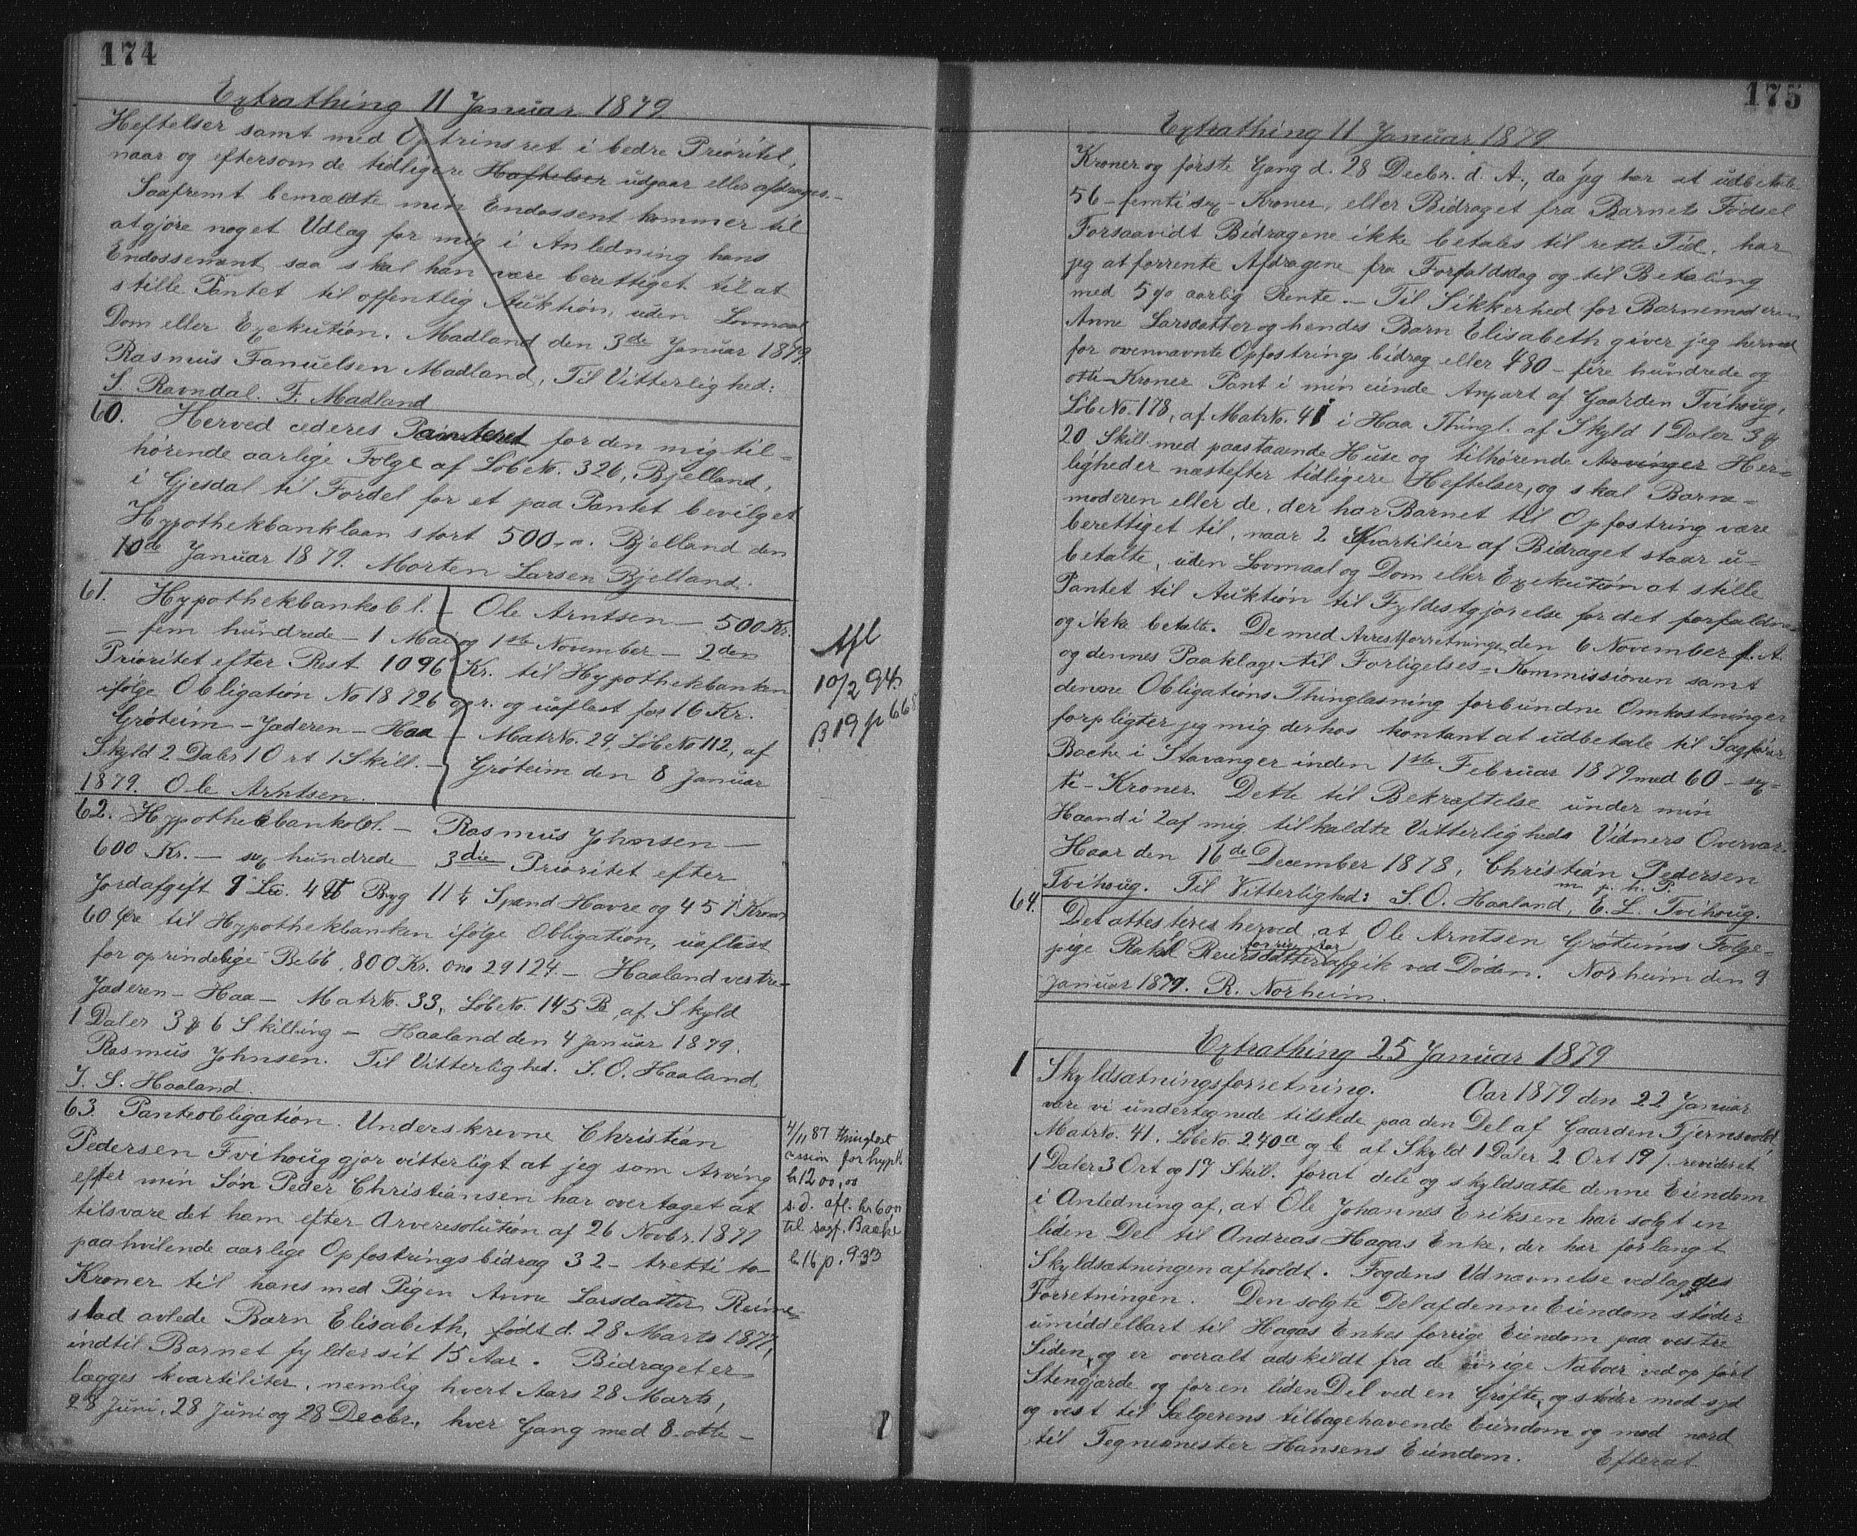 174
Extrathing 11 Januar 1879
Heftelser samt med Optrinsret i bedre Prioritet,
naar og eftersom de tidligere Heftelser udgaar eller afdrages.-
Saafremt bemældte min Endossent kommer til
at gjøre noget Udlag for mig i Anledning hans
Endossement, saa skal han være berettiget til at
stille Pantet til offentlig Auktion, uden Lovmaal
Dom eller Exekution. Madland den 3de Januar 1879.
Rasmus Fanuelsen Madland, Til Vitterlighed:
S. Ravndal. F. Madland
60. Herved cederes Panteret for den mig til-
hørende aarlige Folge af LøbeNo. 326, Bjelland,
i Gjesdal til Fordel for et paa Pantet bevilget
Hypothekbanklaan stort 500,-. Bjelland den
10de Januar 1879. Morten Larsen Bjelland.
61. Hypothekbankobl. - Ole Arntsen - 500 Kr.
- fem hundrede - 1 Mai og 1ste November - 2den
Prioritet efter Rest 1096 Kr. til Hypothekbanken
ifølge Obligation No 18726 opr. og uaflest for 16 Kr.
Grøteim - Jæderen - Haa - MatrNo. 24, LøbeNo 112, af
Skyld 2 Daler 1 Ort 1 Skill. - Grøteim den 8 Januar
1879. Ole Arntsen.
Afl
10/2 94.
B 19 p 668
62. Hypothekbankobl. - Rasmus Johnsen -
600 Kr. - sex hundrede 3die Prioritet efter
Jordafgift 1 Lis. 4 ℔ Byg 11 1/2 Spand Havre og 451 Kroner
60 Øre til Hypothekbanken ifølge Obligation, uaflest
for oprindelige Beløb, 800 Kr. No 29124 - Haaland vestre -
Jæderen - Haa - MatrNo. 33, LøbeNo. 145 B, af Skyld
1 Daler 3 ₰ 6 Skilling - Haaland den 4 Januar 1879.
Rasmus Johnsen. Til Vitterlighed. S. O. Haaland
T. S. Haaland
63. Panteobligation. Underskrevne Christian
Pedersen Tvihoug gjør vitterligt at jeg som Arving
efter min Søn Peder Christiansen har overtaget at
tilsvare det ham efter Overresolution af 26 Novbr. 1877
paahvilende aarlige Opfostringsbidrag 32 - tretti to -
Kroner til hans med Pigen Anne Larsdatter Reime-
stad avlede Barn Elisabeth, født d. 28 Marts 1877,
indtil Barnet fylder sit 15 Aar. Bidraget er-
lægges kvartiliter, nemlig hvert Aars 28 Marts,
28 Juni, 28 Juni og 28 Decbr., hver Gang med 8 - otte -
4/11 87 thinglæst
cession for hypth.
kr 1200,00
s.d. afl. kr 60
til sagf. Bache
b. 16 p. 933
175
Extrathing 11 Januar 1879
Kroner og første Gang d. 28 Decbr. d. A., da jeg har at udbetale
56 - femti sex - Kroner, eller Bidraget fra Barnets Fødsel
Forsaavidt Bidragene ikke betales til rette Tid, har
jeg at forrente Afdragene fra Forfaldsdag og til Betaling
med 5% aarlig Rente. - Til Sikkerhed for Barnemoderen
Anne Larsdatter og hendes Barn Elisabeth giver jeg herved
for ovennævnte Opfostringsbidrag eller 480 - fire hundrede og
otti - Kroner Pant i min eiende Anpart af Gaarden Tvihoug,
LøbNo. 178, af MatrNo. 41 i Haa Thingl. af Skyld 1 Daler 3 ₰
20 Skill. med paastaaende Huse og tilhørende Arvinger Her-
ligheder næstefter tidligere Heftelser, og skal Barne-
moderen eller de, der har Barnet til Opfostring være
berettiget til, naar 2 Kvartiler af Bidraget staar u-
betalte, uden Lovmaal og Dom eller Exekution at stille
Pantet til Auktion til Fyldestgjørelse for det forfaldne
og ikke betalte. De med Arrestforretningen den 6 November f. A.
og dennes Paaklage til Forligelses-Kommissionen samt
denne Obligations Thinglæsning forbundne Omkostninger
forpligter jeg mig derhos kontant at udbetale til Sagfører
Bache i Stavanger inden 1ste Februar 1879 med 60 - sex-
ti - Kroner. Dette til Bekræftelse under min
Haand i 2 af mig tilkaldte Vitterligheds Vidners Overvær.
Haar den 16de December 1878, Christian Pedersen
Tvihoug. m. p. h. P. Til Vitterlighed: S. O. Haaland, E. L. Tvihoug.
64. Det attesteres herved, at Ole Arntsen Grøteims Folge-
pige Rakel Reiersdatter forrige Aar afgik ved Døden. Norheim den 9
Januar 1879. R. Norheim.
Extrathing 25 Januar 1879
1 Skyldsætningsforretning. Aar 1879 den 22 Januar
vare vi undertegnede tilstede paa den Del af Gaarden Tjernsvold,
MatrNo. 41, LøbeNo. 240a og b af Skyld 1 Daler 2 Ort 19 ₰. revideret
1 Daler 3 Ort og 17 Skill. forat dele og skyldsætte denne Eiendom
i Anledning af, at Ole Johannes Eriksen har solgt en
liden Del til Andreas Hagas Enke, der har forlangt
Skyldsætningen afholdt. Fogdens Udnævnelse vedlægges
Forretningen. Den solgte Del af denne Eiendom støder
umiddelbart til Hagas Enkes forrige Eiendom paa vestre
Siden, og er overalt adskildt fra de øvrige Naboer ved opført
Stengjærde og for en liden Del ved en Grøfte, og støder mod syd
og vest til Sælgerens tilbagehavende Eiendom og mod nord
til Tegnemester Hansens Eiendom. Efterat